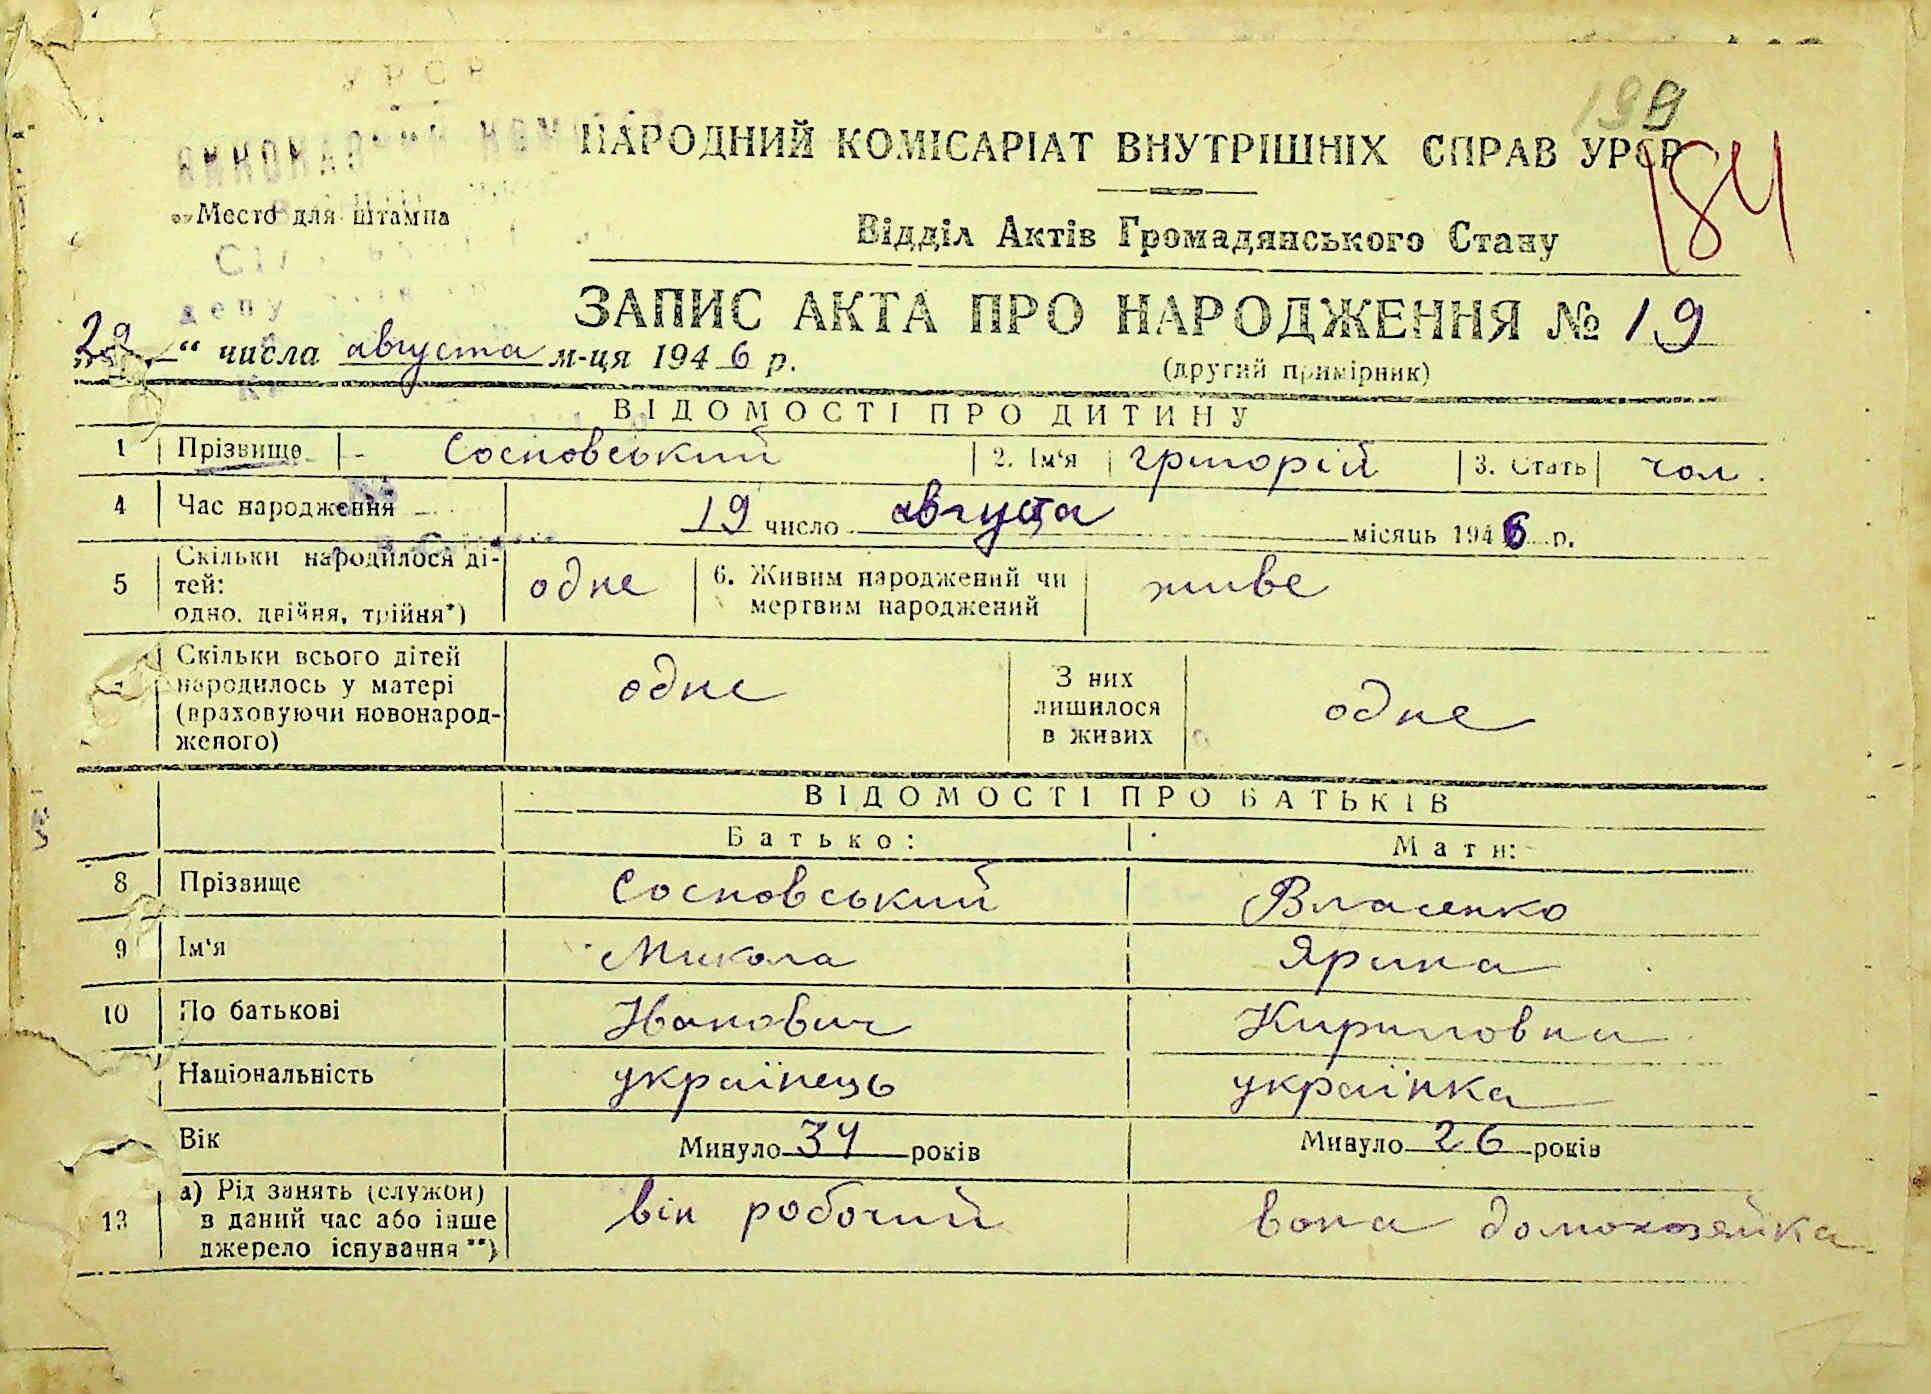 УРСР
199
НАРОДНИЙ КОМІСАРІАТ ВНУТРІШНІХ СПРАВ УРСР
184
Место для штампа
Відділ Актів Громадянського Стану
ЗАПИС АКТА ПРО НАРОДЖЕННЯ № 19
29 “ числа августа м-ця 1946 р.
(другий примірник)
ВІДОМОСТІ ПРО ДИТИНУ
1 Прізвище Сосновський 2. Ім‘я григорій 3. Стать чол.
4 Час народження 19 число августа місяць 1946 р.
5 Скільки народилося ді-
тей:
одно, двійня, трійня*) одне 6. Живим народжений чи
мертвим народжений живе
Скільки всього дітей
народилось у матері
(враховуючи новонарод-
женого) одне З них
лишилося
в живих одне
ВІДОМОСТІ ПРО БАТЬКІВ
Батько: Мати:
8 Прізвище Сосновський Власенко
9 Ім‘я Микола Ярина
10 По батькові Иванович Кириловна
Національність українець українка
Вік Минуло 34 років Минуло 26 років
13 а) Рід занять (служби)
в даний час або інше
джерело існування**) він робочий вона домохозяйка